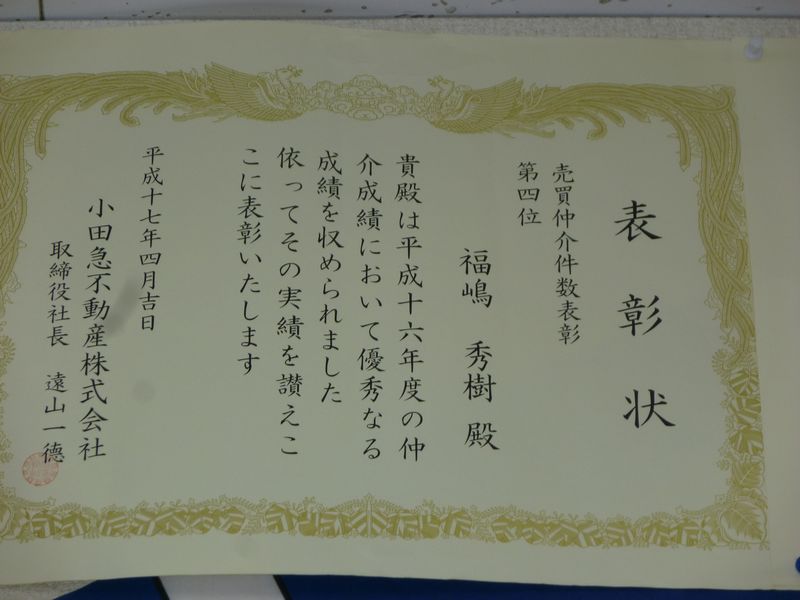 表彰状
売買仲介件数表彰
第四位
福嶋 秀樹 殿
貴殿は平成十六年度の仲
介成績において優秀なる
成績を収められました
依ってその実績を讃えこ
こに表彰いたします
平成十七年四月吉日
小田急不動産株式会社
取締役社長 遠山一德